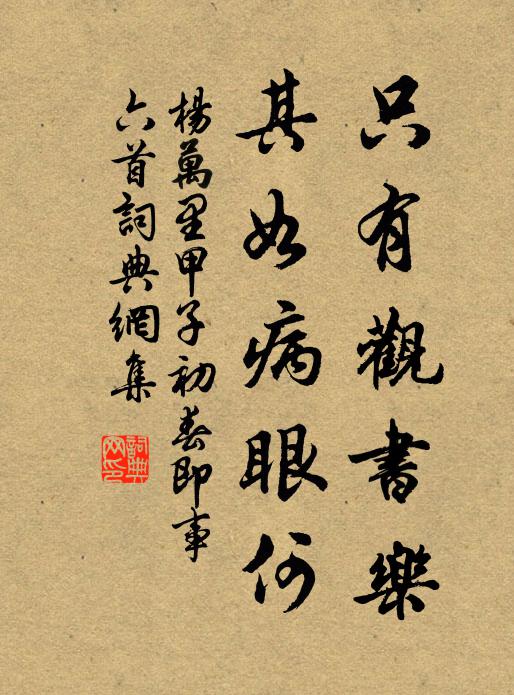 只有觀書樂
其如病眼何
楊萬里甲子初春即事
六首詞典網集
詞典网印